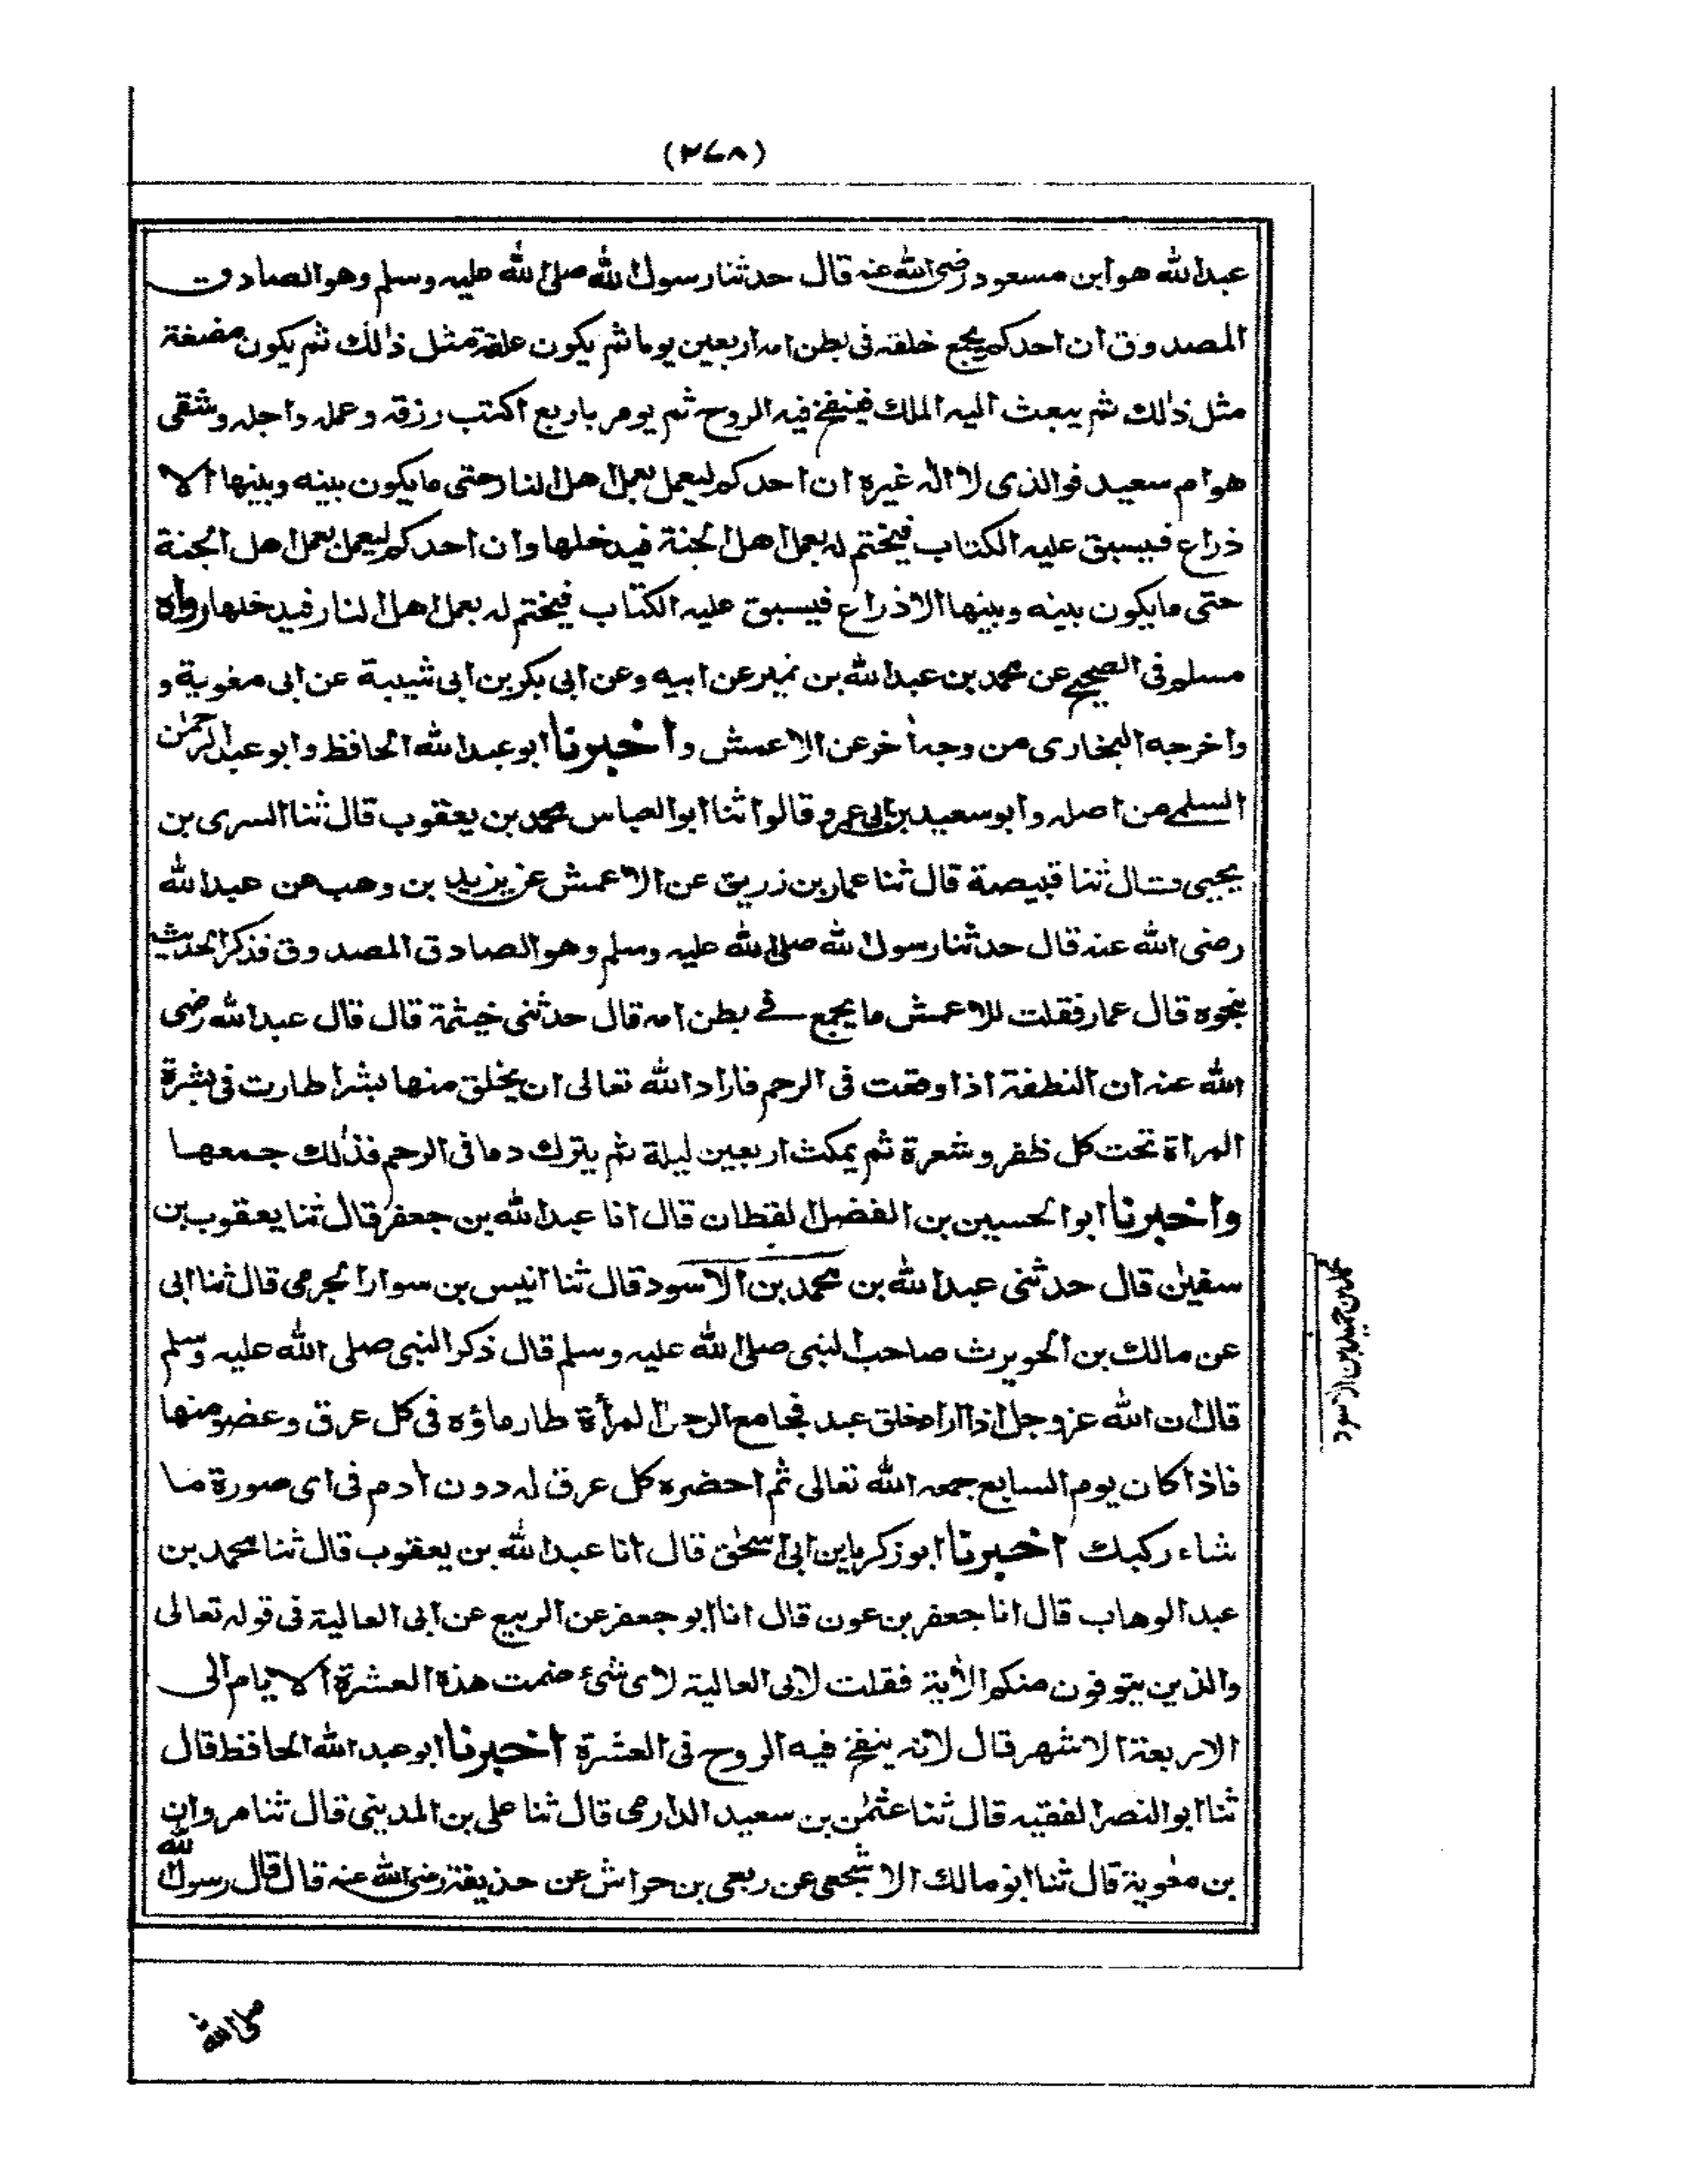 (٢٧٨)
عبدالله هوابن مسعود رضى الله عنه قال حدثنا رسول الله صلى الله عليه وسلم وهوالصادق
المصدوق ان احدكم يجمع خلقه فى بطن امه اربعين يوما ثم يكون علقة مثل ذالك ثم يكون مضغة
مثل ذالك ثم يبعث اليه الملك فينفخ فيه الروح ثم يومر باربع اكتب رزقه وعمله واجله وشقى
هو ام سعيد فوالذى لا اله غيره ان احدكم ليعمل بعمل اهل النار حتى مايكون بينه وبينها الا
ذراع فيسبق عليه الكتاب فيختم له بعمل اهل الجنة فيدخلها وان احدكم ليعمل بعمل اهل الجنة
حتى مايكون بينه وبينها الا ذراع فيسبق عليه الكتاب فيختم له بعمل اهل النار فيدخلها رواه
مسلم فى الصحيح عن محمد بن عبدالله بن نمير عن ابيه وعن ابى بكر بن ابى شيبة عن ابى معٰوية و
واخرجه البخارى من وجه اٰخر عن الاعمش واخبرنا ابو عبدالله الحافظ وابو عبدالرحمٰن
السلمى من اصله وابو سعيد بن ابى عمرو قالوا ثنا ابوالعباس محمد بن يعقوب قال ثنا السرى بن
يحيى قال ثنا قبيصة قال ثنا عمار بن زريق عن الاعمش عن يزيد بن وهب عن عبدالله
رضى الله عنه قال حدثنا رسول الله صلى الله عليه وسلم وهو الصادق المصدوق فذكر الحديث
بنحوه قال عمار فقلت للاعمش ما يجمع فى بطن امه قال حدثنى خيثمة قال قال عبدالله رضى
الله عنه ان النطفة اذا وقعت فى الرحم فاراد الله تعالى ان يخلق منها بشرا طارت فى بشرة
المراة تحت كل ظفر وشعرة ثم يمكث اربعين ليلة ثم يترك دما فى الرحم فذٰلك جمعها
واخبرنا ابوالحسين بن الفضل القطان قال انا عبدالله بن جعفر قال ثنا يعقوب بن
سفيٰن قال حدثنى عبدالله بن محمد بن الاسود قال ثنا انيس بن سوار الجرمى قال ثنا ابى
عن مالك بن الحويرث صاحب النبى صلى الله عليه وسلم قال ذكر النبى صلى الله عليه وسلم
قال ان الله عزوجل اذا اراد خلق عبد فجامع الرجل المرأة طار ماؤه فى كل عرق وعضو منها
فاذا كان يوم السابع جمعه الله تعالى ثم احضره كل عرق له دون اٰدم فى اى صورة ما
شاء ركبك اخبرنا ابو زكريا بن ابى اسحٰق قال انا عبدالله بن يعقوب قال ثنا محمد بن
عبدالوهاب قال انا جعفر بن عون قال انا ابو جعفر عن الربيع عن ابى العالية فى قوله تعالى
والذين يتوفون منكم الاٰية فقلت لابى العالية لاى شئ ضمت هذه العشرة الايام الى
الاربعة الاشهر قال لانه ينفخ فيه الروح فى العشرة اخبرنا ابو عبدالله الحافظ قال
ثنا ابوالنصر الفقيه قال ثنا عثمٰن بن سعيد الدارمى قال ثنا على بن المدينى قال ثنا مروان
بن معٰوية قال ثنا ابو مالك الاشجعى عن ربعى بن حراش عن حذيفة رضى الله عنه قال قال رسول الله
بن الاسود
صلى الله